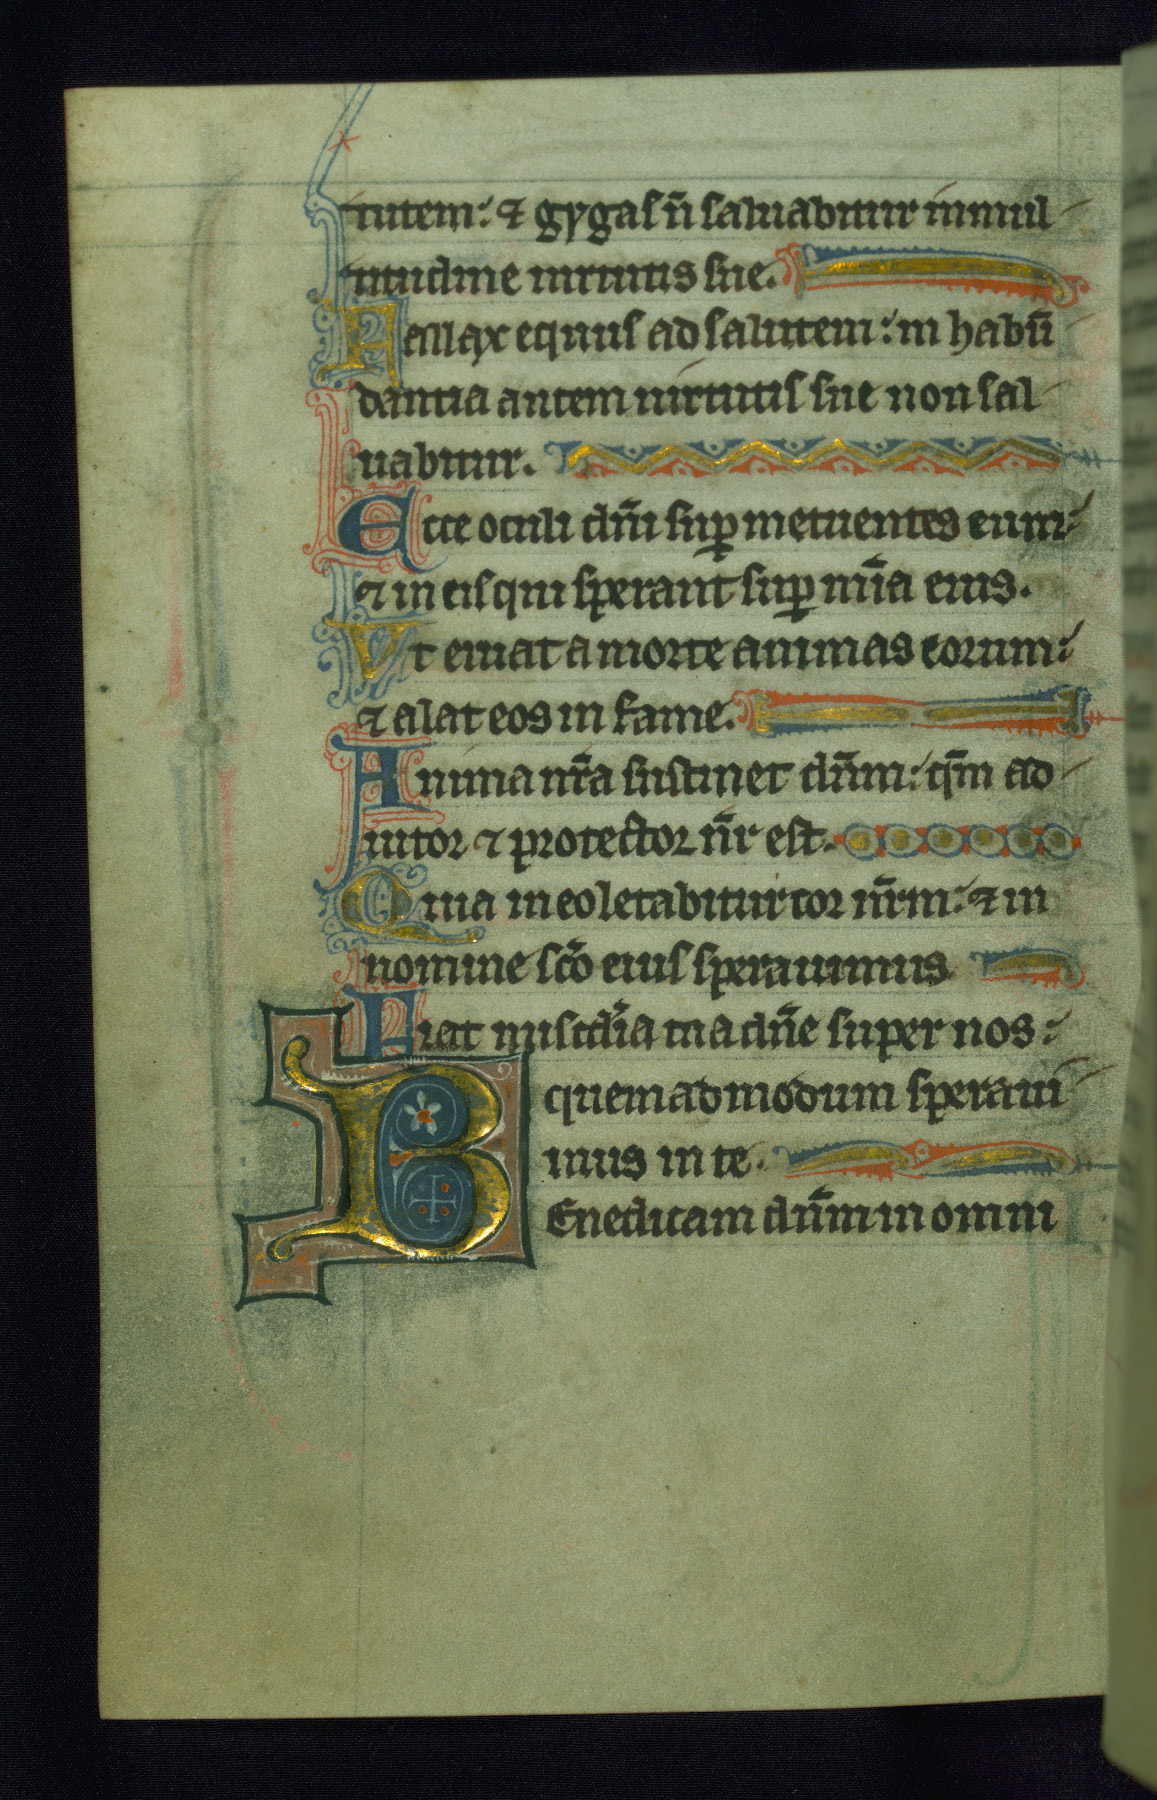 tutem: ⁊ gygas ñ saluabitur inmul
titudine uirtutis sue.
Fallax equus ad salutem: in habũ
dantia autem uirtutis sue non sal
uabitur.
Ecce oculi dñi sup̱ metuentes eum:
⁊ in eis qui sperant sup̱ mĩa eius.
Vt eruat a morte animas eorum:
⁊ alat eos in fame.
Anima nr̃a sustinet dñm: qm̃ ad
iutor ⁊ protector nr̃ est.
Quia in eo letabitur cor nr̃m: ⁊ in
nomine sc̃o eius sperauimus
Fiat miscd̃ia tua dñe super nos:
quemadmodum speraui
mus in te.
Benedicam dñm in omni